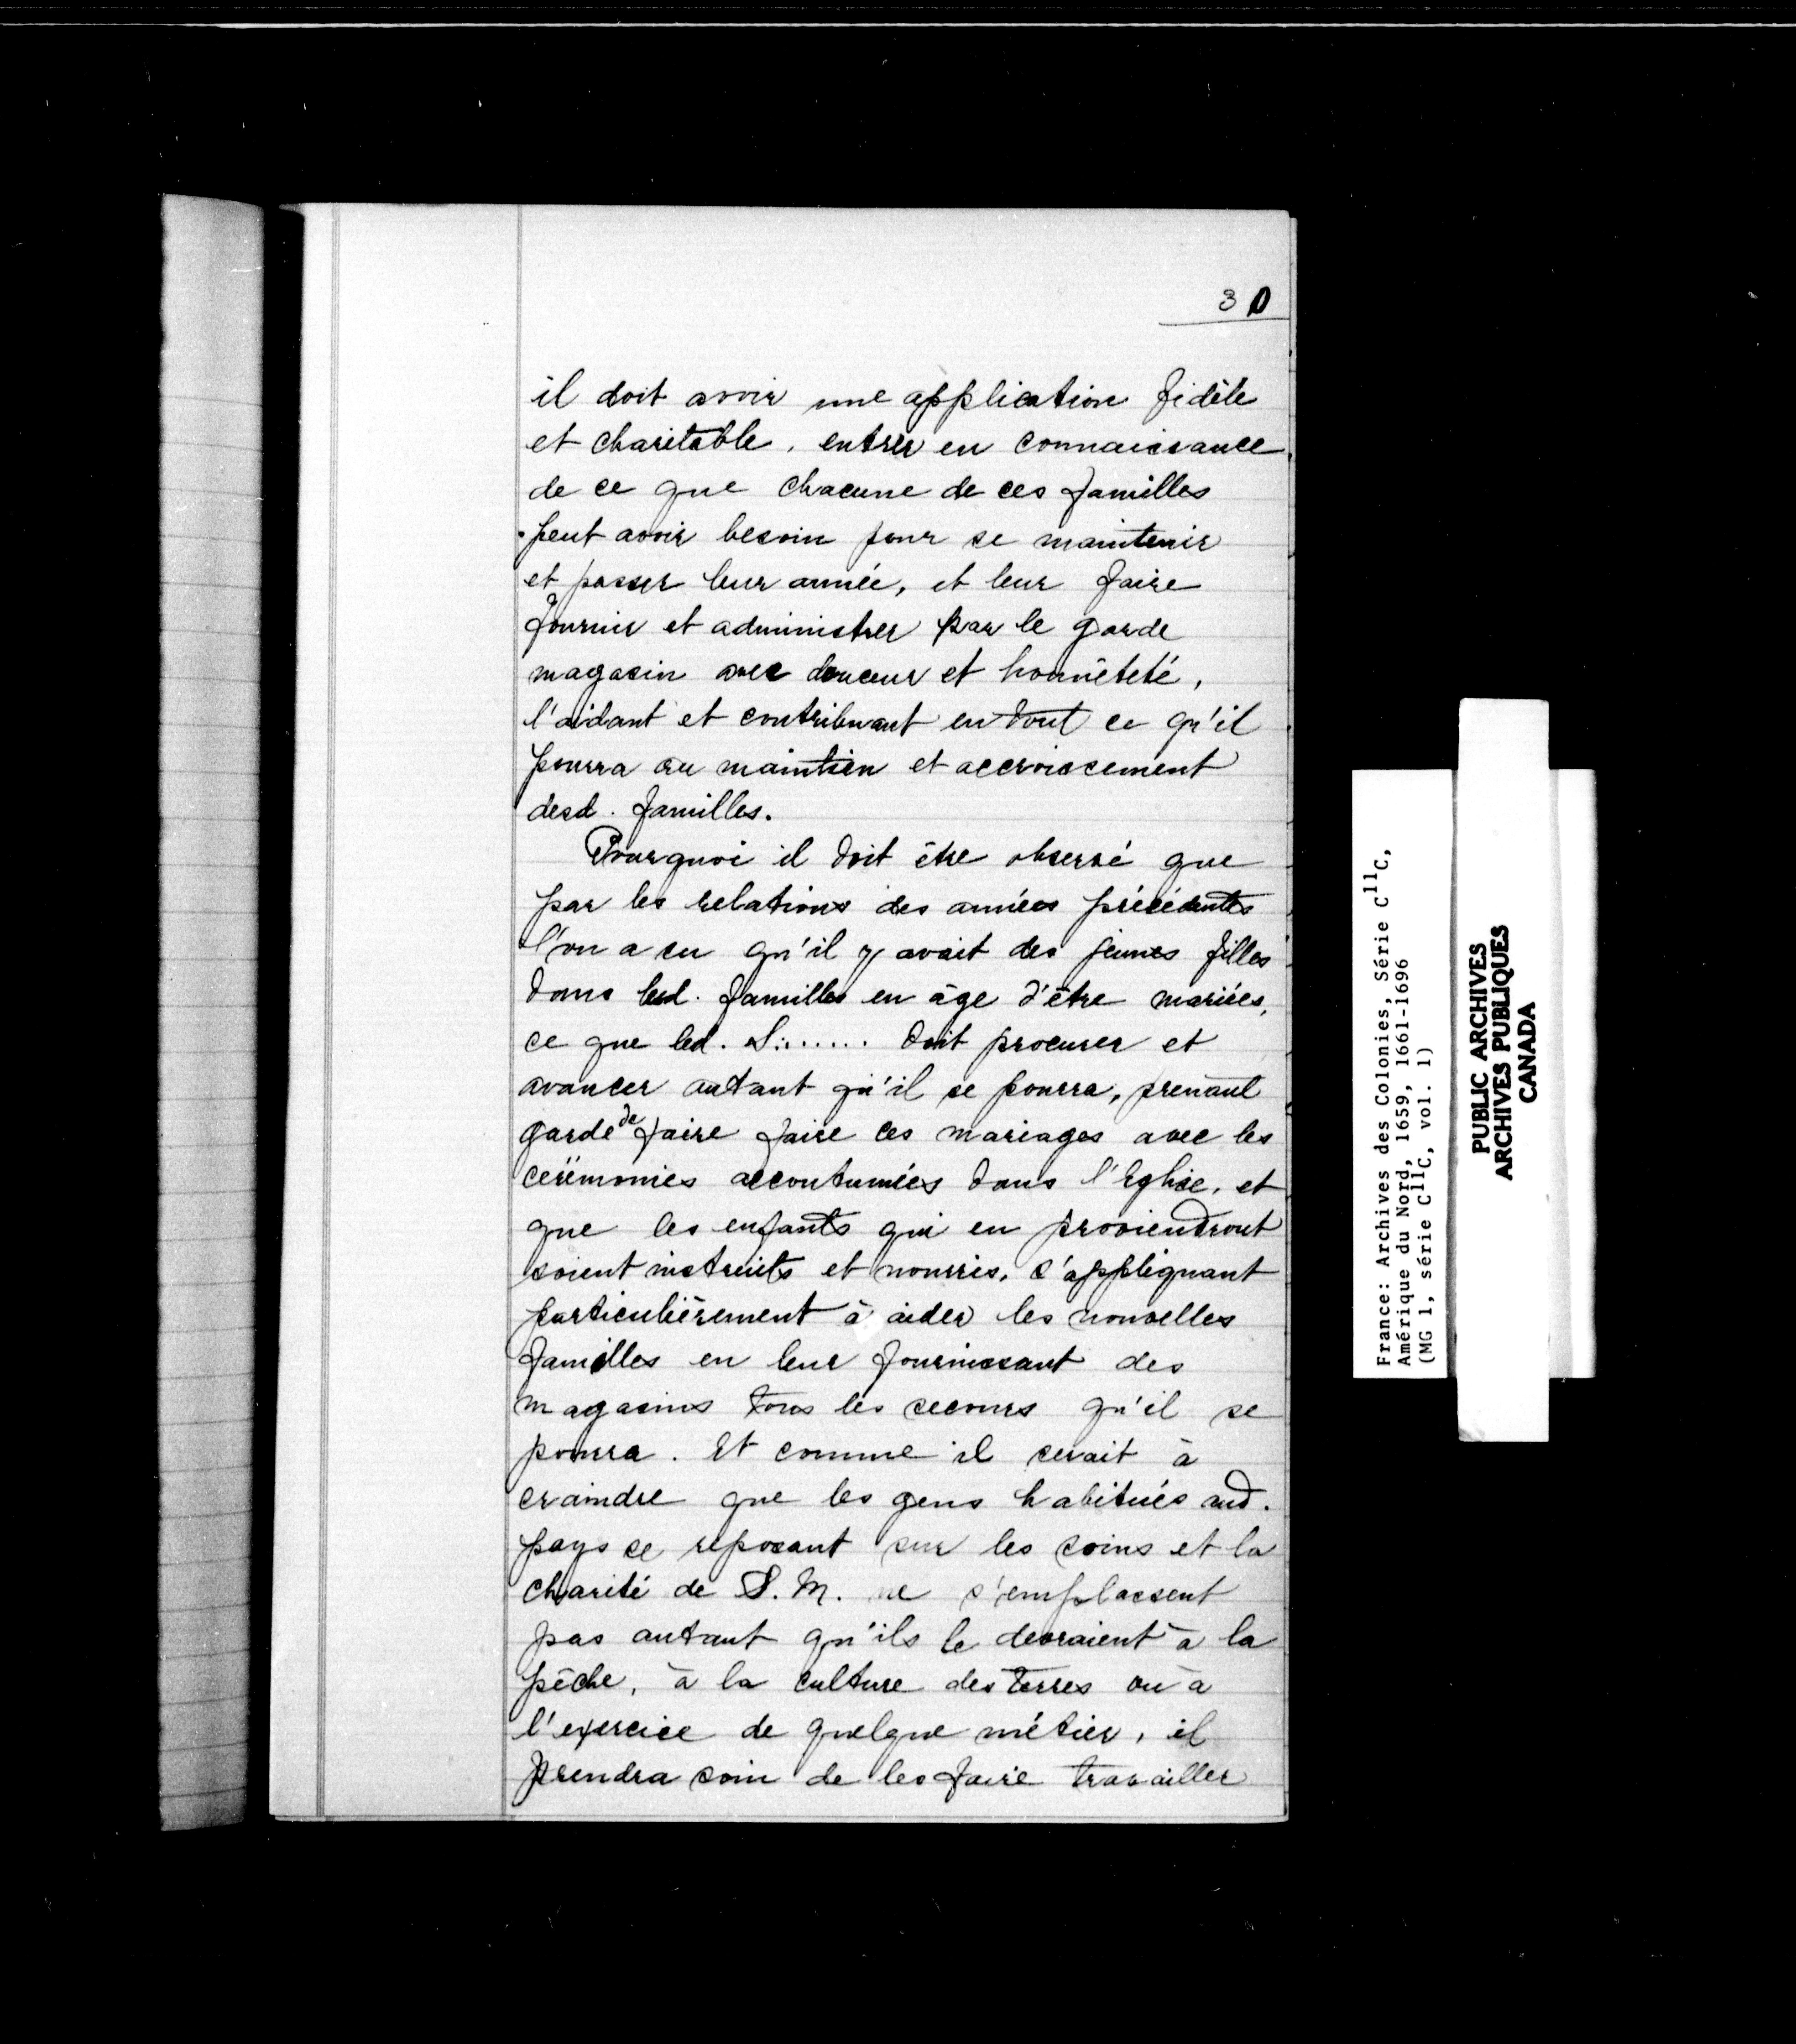 30
il doit avoir une application fidèle
et charitable, entrer en connaissance
de ce que chacune de ces familles
peut avoir besoin pour se maintenir
et passer leur année, et leur faire
fournir et administrer par le garde
magasin avec douceur et honnêteté,
l'aidant et contribuant en tout ce qu'il
pourra au maintien et accroissement
desd. familles.
Pourquoi il doit être observé que
par les relations des années précédentes
l'on a su qu'il y avait des jeunes filles
dans lesd. familles en âge d'être mariées,
ce que led. S....... doit procurer et
avancer autant qu'il se pourra, prenant
garde de faire faire ces mariages avec les
cerémonies accoutumées dans l'Eglise, et
que les enfants qui en proviendront
soient instruits et nourris, s'appliquant
particulièrement à aider les nouvelles
familles en leur fournissant des
magasins tous les secours qu'il se
pourra. Et comme il serait à
craindre que les gens habitués aud.
pays se reposant sur les soins et la
charité de S. M. ne s'emplassent
pas autant qu'ils le devraient à la
pêche, à la culture des terres ou à
l'exercice de quelque métier, il
prendra soin de les faire travailler
France: Archives des Colonies, Série C11C,
Amérique du Nord, 1659, 1661-1696
(MG 1, série C11C, vol. 1)
PUBLIC ARCHIVES
ARCHIVES PUBLIQUES
CANADA